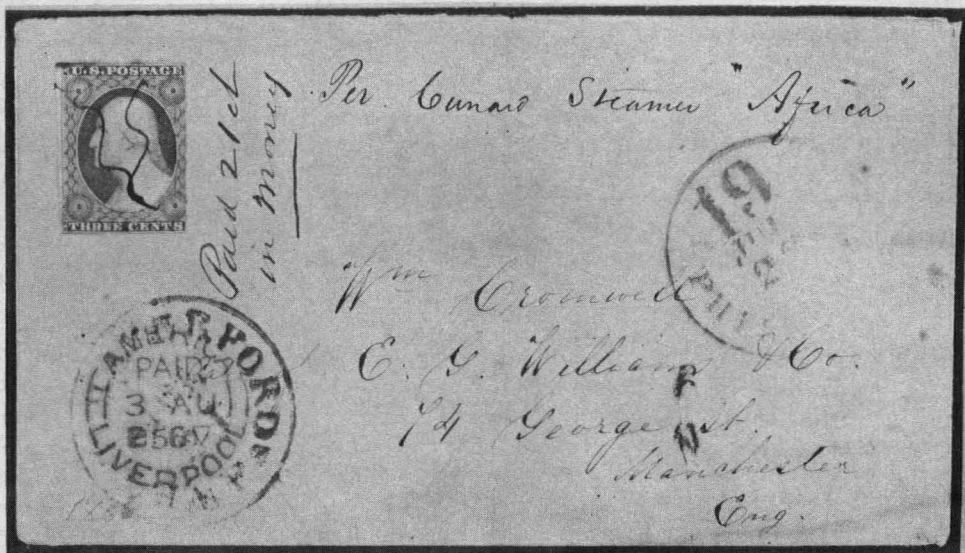 U.S. POSTAGE
THREE CENTS
Paid 21 ct
in Money
Per Cunard Steamer "Africa"
19
PHI
Wm Cromwell
E. G. William & Co.
74 George St.
Manchester
Eng.
AMERICA
PAID
3 AU
LIVERPOOL
FORD